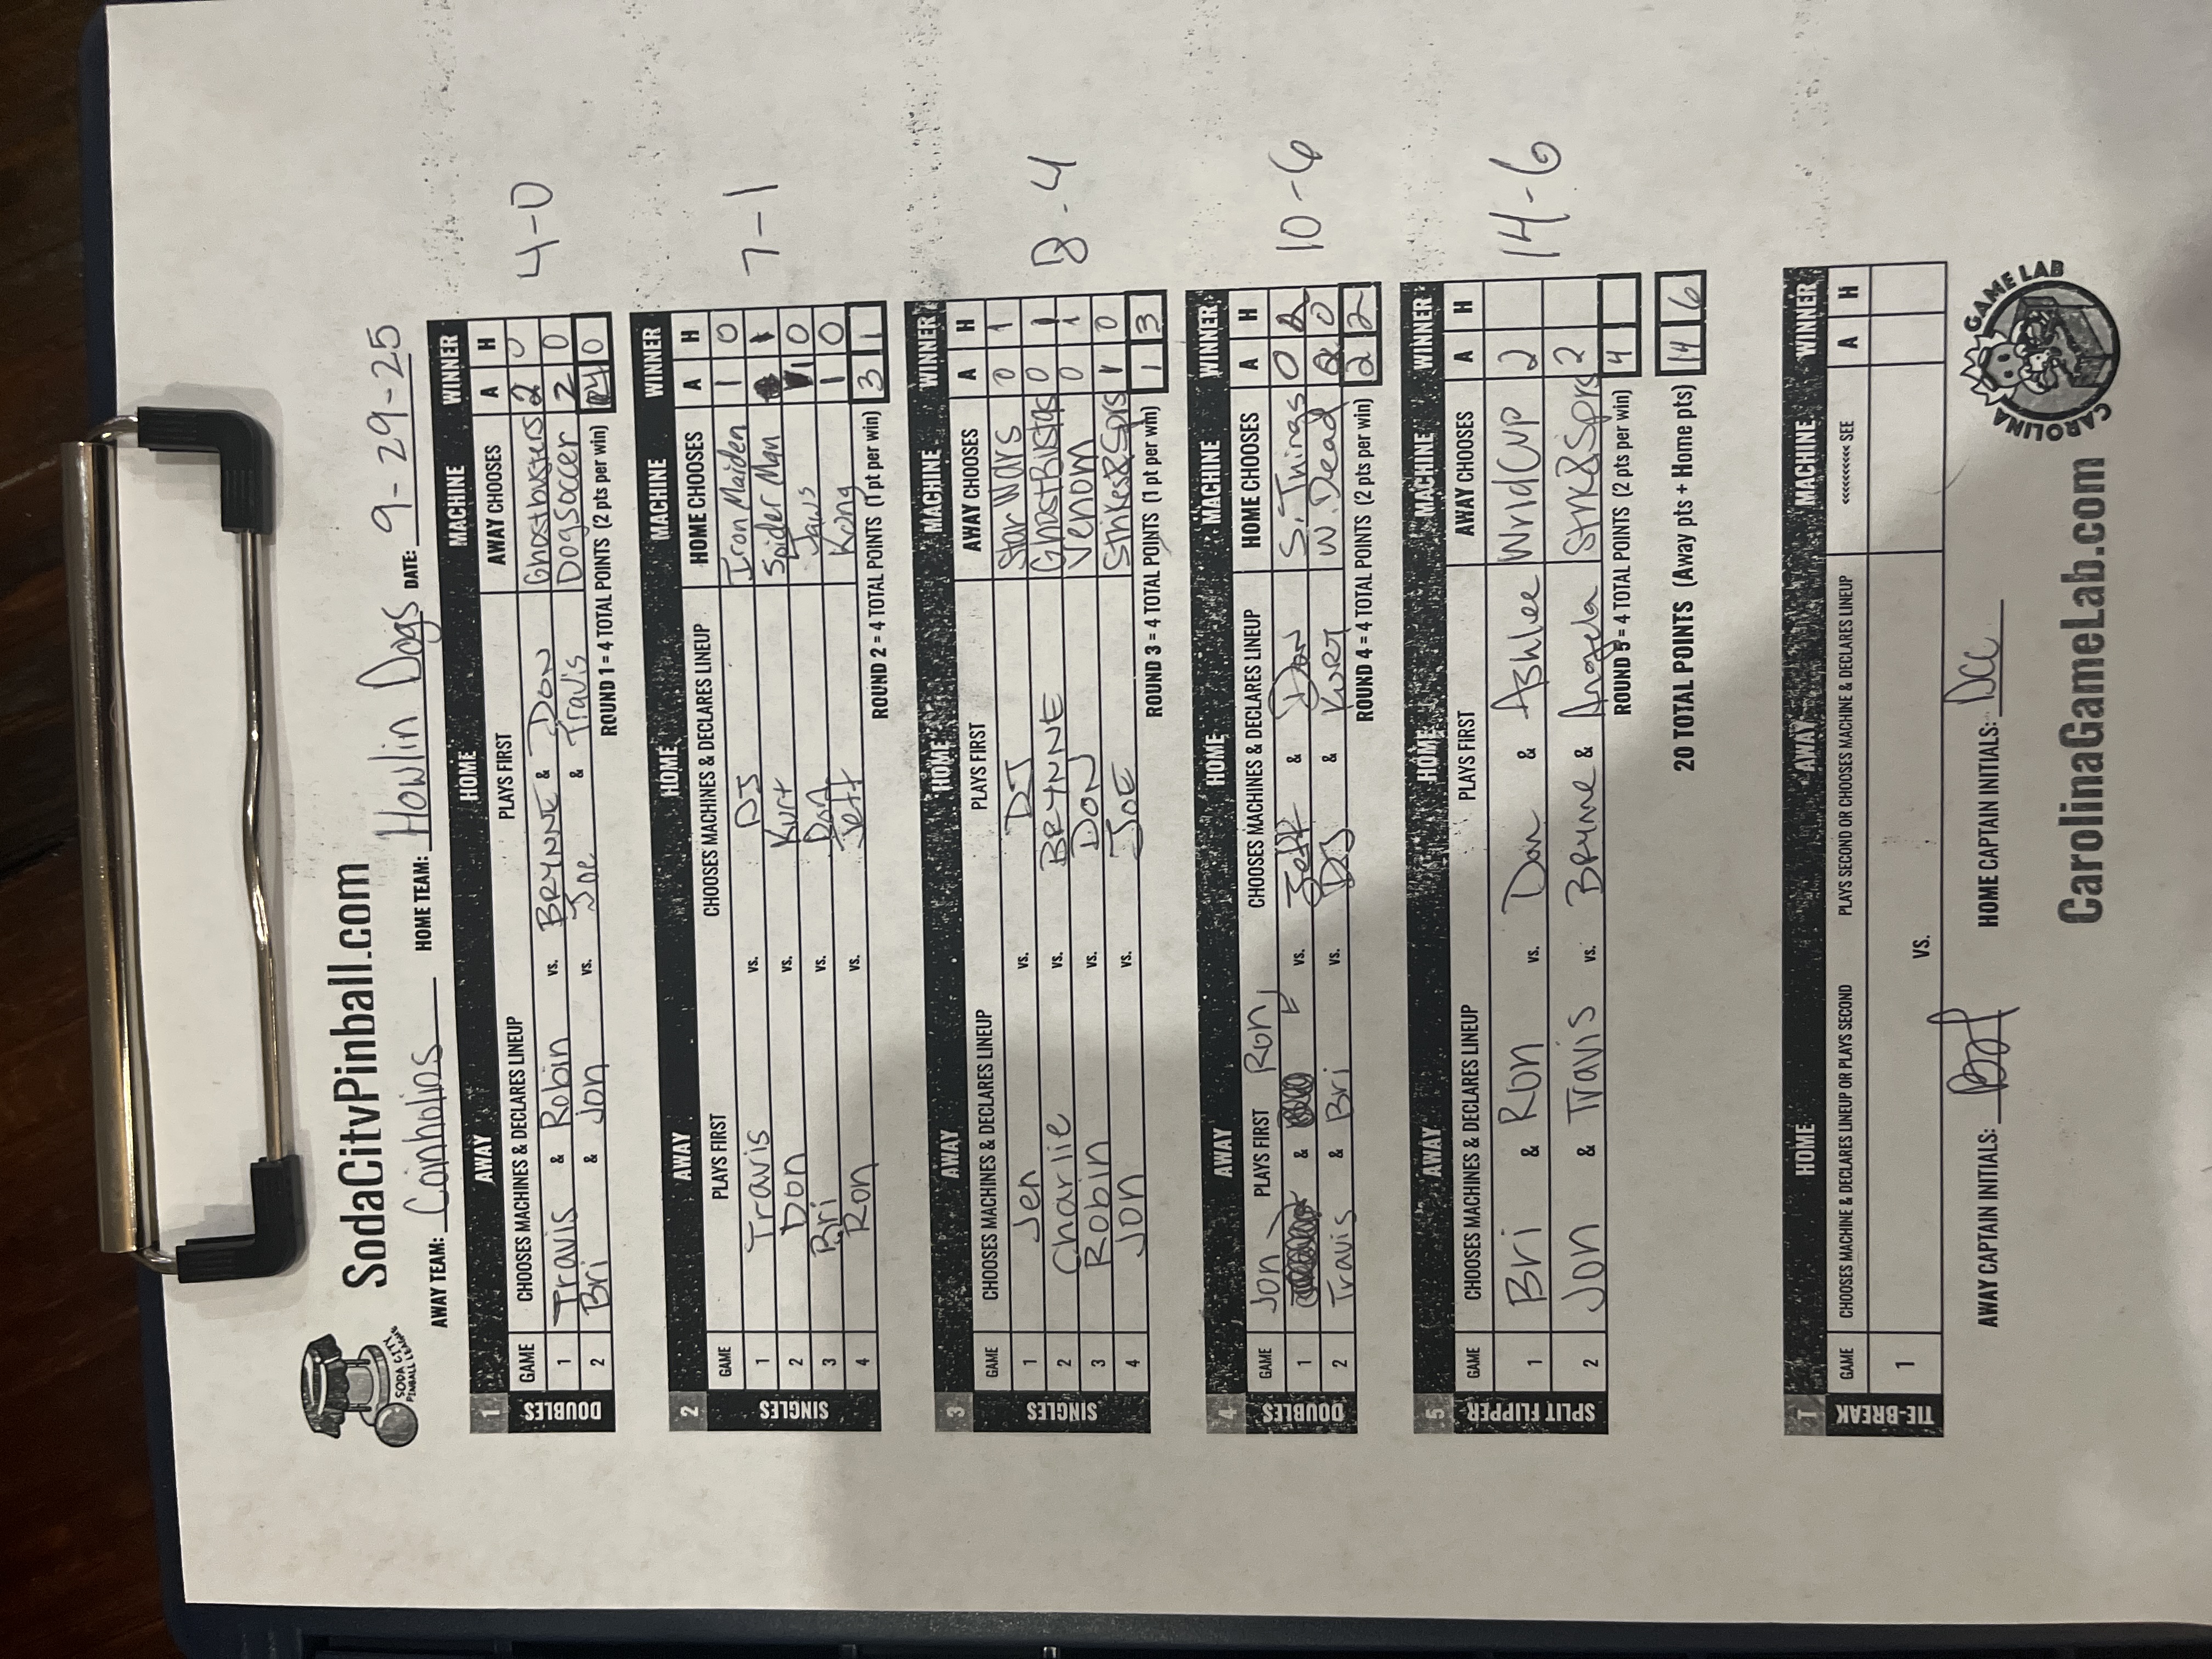 SodaCityPinball.com
SODA CITY PINBALL LEAGUE
AWAY TEAM: Coinholios HOME TEAM: Howlin Dogs DATE: 9-29-25
1 AWAY HOME MACHINE WINNER
GAME CHOOSES MACHINES & DECLARES LINEUP PLAYS FIRST AWAY CHOOSES A H
DOUBLES
1 Travis & Robin vs. BRYNNE & DON Ghostbusters 2 0
2 Bri & Jon vs. Joe & Travis Dog Soccer 2 0
ROUND 1 = 4 TOTAL POINTS (2 pts per win) 4 0
4-0
2 AWAY HOME MACHINE WINNER
GAME PLAYS FIRST CHOOSES MACHINES & DECLARES LINEUP HOME CHOOSES A H
SINGLES
1 Travis vs. DJ Iron Maiden 1 0
2 Don vs. Kurt Spider Man 1
3 Bri vs. Jaws 1 0
4 Ron vs. Jeff Kong 1 0
ROUND 2 = 4 TOTAL POINTS (1 pt per win) 3 1
7-1
3 AWAY HOME MACHINE WINNER
GAME CHOOSES MACHINES & DECLARES LINEUP PLAYS FIRST AWAY CHOOSES A H
SINGLES
1 Jen vs. DJ Star Wars 0 1
2 Charlie vs. BRYNNE GhostBustas 0 1
3 Robin vs. DON Venom 0 1
4 Jon vs. JOE Strikes&Sprs 1 0
ROUND 3 = 4 TOTAL POINTS (1 pt per win) 1 3
8-4
4 AWAY HOME MACHINE WINNER
GAME PLAYS FIRST CHOOSES MACHINES & DECLARES LINEUP HOME CHOOSES A H
DOUBLES
1 Jon & Ron vs. Jeff & Dan S. Things 0 2
2 Travis & Bri vs. DJ & KURT W. Dead 2 0
ROUND 4 = 4 TOTAL POINTS (2 pts per win) 2 2
10-6
5 AWAY HOME MACHINE WINNER
GAME CHOOSES MACHINES & DECLARES LINEUP PLAYS FIRST AWAY CHOOSES A H
SPLIT FLIPPER
1 Bri & Ron vs. Don & Ashlee Wrld CUP 2
2 Jon & Travis vs. BRYNNE & Angela Strk&Sprs 2
ROUND 5 = 4 TOTAL POINTS (2 pts per win) 4
14-6
20 TOTAL POINTS (Away pts + Home pts) 14 6
T HOME AWAY MACHINE WINNER
GAME CHOOSES MACHINE & DECLARES LINEUP OR PLAYS SECOND PLAYS SECOND OR CHOOSES MACHINE & DECLARES LINEUP <<<<<<<<<< SEE A H
TIE-BREAK
1 VS.
AWAY CAPTAIN INITIALS: HOME CAPTAIN INITIALS: DCC
CarolinaGameLab.com
CAROLINA GAME LAB